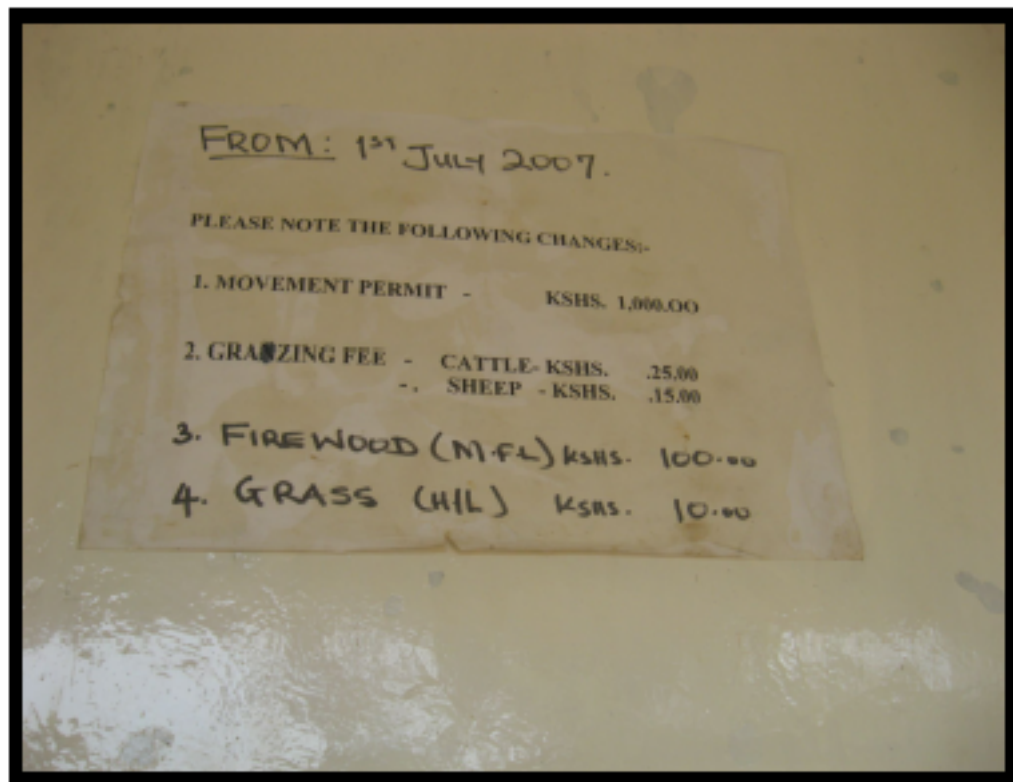 FROM: 1ST JULY 2007.
PLEASE NOTE THE FOLLOWING CHANGES:-
1. MOVEMENT PERMIT - KSHS. 1,000.OO
2. GRAZING FEE - CATTLE- KSHS. .25.00
-. SHEEP - KSHS. .15.00
3. FIREWOOD (M.FL) KSHS. 100.00
4. GRASS (H/L) KSHS. 10.00